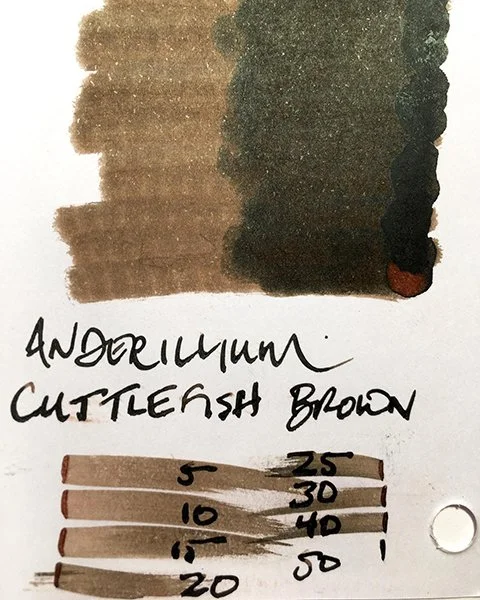 ANDERILLIUM
CUTTLEFISH BROWN
5 25
10 30
15 40
20 50